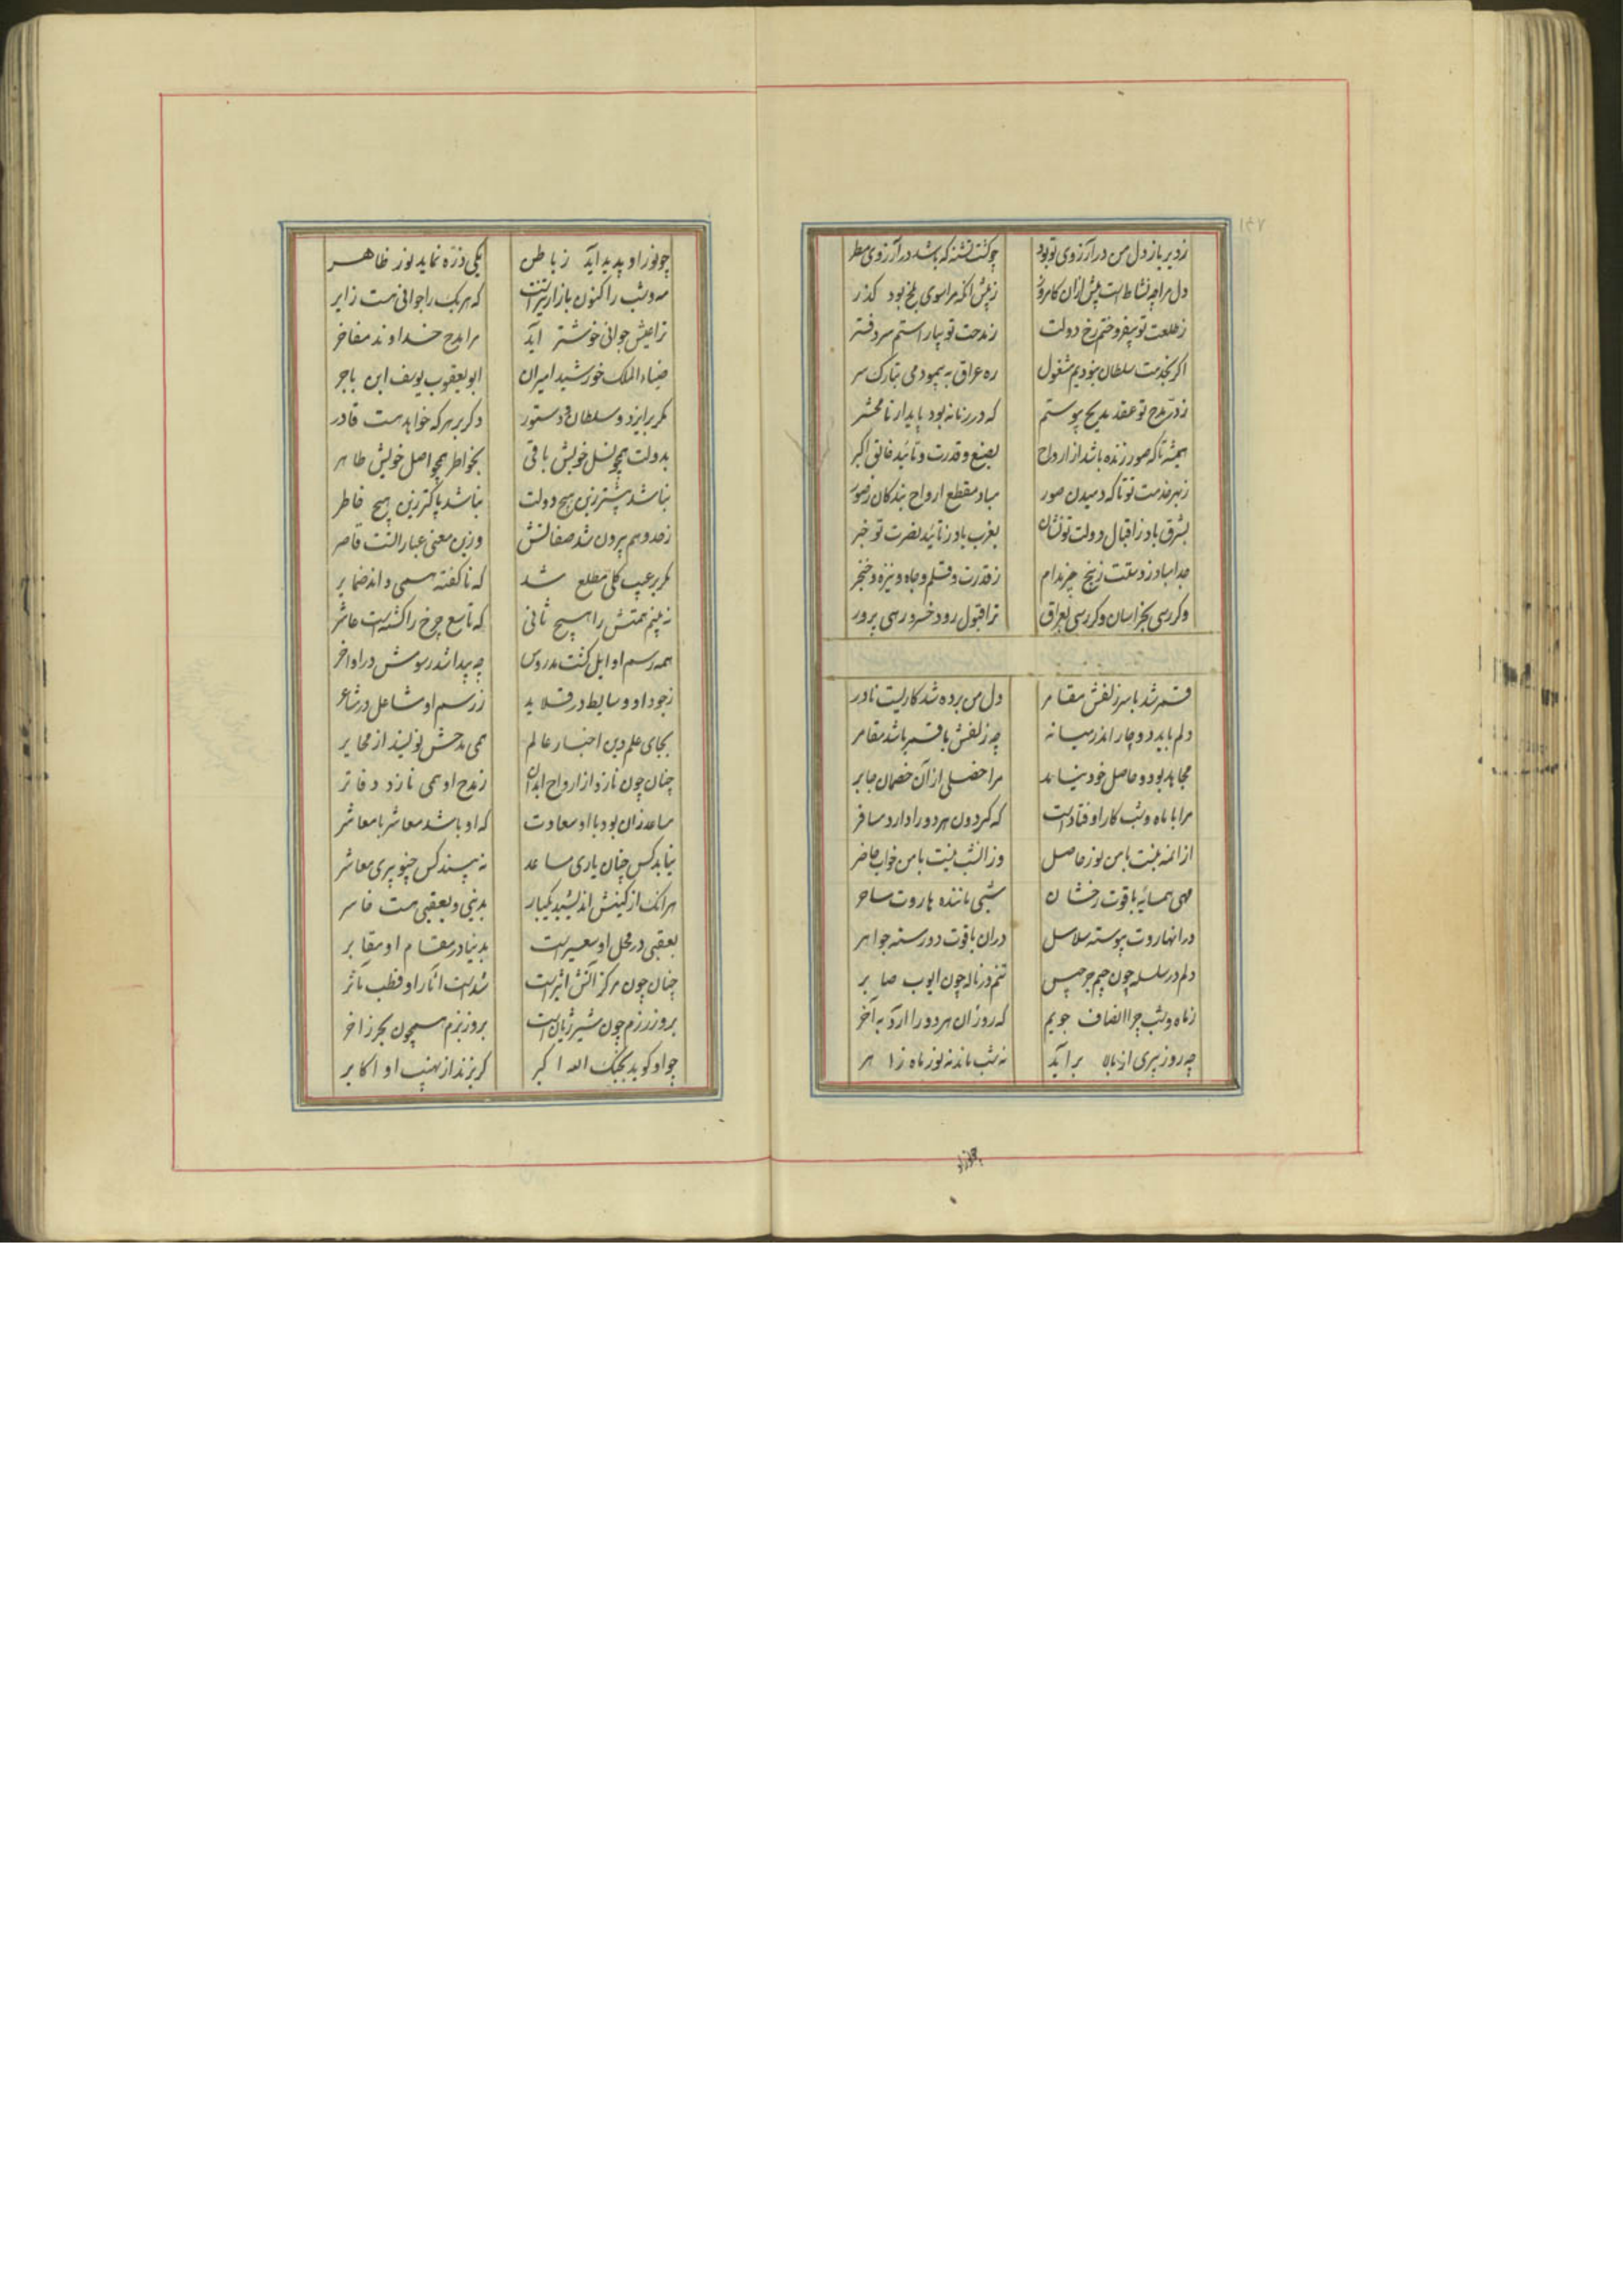 زدیر باز دل من در آرزوی تو بود چو کشت تشنه که باشد در آرزوی مطر
دل مرا چه نشاط است پیش ازان کامروز ز پیش آنکه مرا سوی بلخ بود گذر
ز طلعت تو بیفروختم رخ دولت ز مدحت تو بیاراستم سر دفتر
اگر بخدمت سلطان نبودیم مشغول ره عراق به پیمودمی بتارک سر
ز در مدح تو عقد مدیح پیوستم که در زمانه بود پایدار تا محشر
همیشه تا که صور زنده باشد از ارواح بصنع و قدرت و تائید خالق اکبر
ز بهر خدمت تو تا که دمیدن صور مباد مقطع ارواح بندگان ز صور
بشرق باد ز اقبال دولت تو نشان بغرب باد ز تائید نصرت تو خبر
جدا مباد ز دستت ز پنج چیز مدام ز قدرت و قلم و جاه و نیزه و خنجر
وکر رسی بخراسان وکر رسی بعراق ترا قبول رود خسرو رهی پرور
قمر شد با سر زلفش مقامر دل من برده شد کاریست نادر
دلم باید دو چار اندر میانه چه زلفش با قمر باشد مقامر
مجاهد بود و حاصل خود نیامد مرا خصلی از آن خصمان جابر
مرا با ماه و شب کار اوفتادست که کردون هر دو را دارد مسافر
از آنمه نیست با من نور حاصل وز آنشب نیست با من خواب حاضر
مهی همسایه یاقوت رخشان شبی ماننده هاروت ساحر
در انهاروت پیوسته سلاسل دران یاقوت دو رسته جواهر
دلم در سلسله چون جیم جرجیس تنم در ناله چون ایوب صابر
ز ماه و شب چرا انصاف جویم که روز آن هر دو را آرد به آخر
چه روز پیری از بالا برآید نه شب ماند نه نور ماه زاهر
چو نور او پدید آید ز باطن یکی ذره نماید نور ظاهر
مه و شب را کنون بازار تیزاست که هر یک را جوانی هست زایر
ترا عیش جوانی خوشتر آید مرا مدح خداوند مفاخر
ضیاء الملک خورشید امیران ابو یعقوب یوسف ابن باجر
مکر بر ایزد و سلطان و دستور دکر بر هر که خواهد هست قادر
بدولت همچو نسل خویش باقی بخواطر همچو اصل خویش طاهر
نباشد بیشتر زین هیچ دولت نباشد پاکتر زین هیچ خاطر
ز حد و هم برون شد صفاتش وزین معنی عبارالتست قاصر
مکر بر غیب کلی مطلع شد که ناکفته همی داند ضمایر
نه بینم همتش را هیچ ثانی که تاسع چرخ را کشته است عاشر
همه رسم اوایل کشت مدروس چه پیدا شد رسومش در اواخر
ز جود او وسایط در قلاید ز رسم او مشاعل در مشاعر
بجای علم دین اخبار عالم همی مدحش نویسند از محابر
چنان چون نازد از ارواح ابدان ز مدح او همی نازد دفاتر
مساعد زان بود با او سعادت که او باشد معاشر با معاشر
نیابد کس چنان یاری مساعد نه بیند کس چنو پیری معاشر
هرانک از کینش اندیشید یکبار بدینی و بعقبی هست خاسر
بعقبی در محل او سعیراست بدنیا در مقام او مقابر
چنان چون مرکز آتش اثیراست شدست آثار او قطب مآثر
بروز رزم چون شیر ژیان است بروز بزم همچون بحر زاخر
چو او کوید بجنک الله اکبر کریزند از نهیب او اکابر
چونور